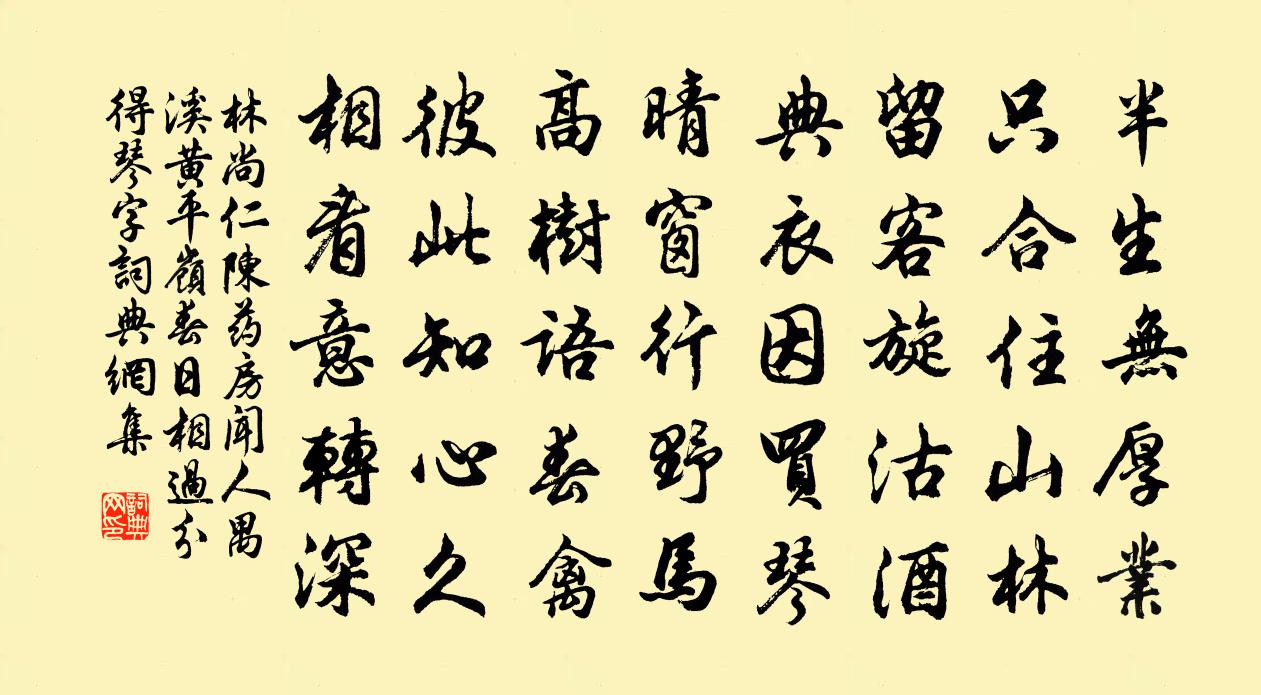 半生無厚業
只合住山林
留客旋沽酒
典衣因買琴
晴窗行野馬
高樹語春禽
彼此知心久
相看意轉深
林尚仁陳药房聞人禺
溪黃平嶺春日相過分
得琴字詞典網集
詞典网印